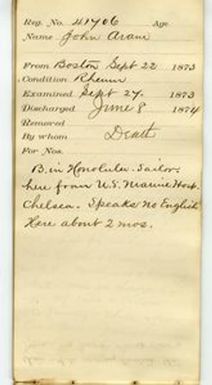 Reg. No. 41706 Age
Name John Arane
From Boston Sept 22 1873
Condition Rheum
Examined Sept 27. 1873
Discharged June 8 1874
Removed
By whom Death
For Nos.
B. in Honolulu. Sailor.
here from U.S. Marine Hosp.
Chelsea. Speaks no English
Here about 2 mos.